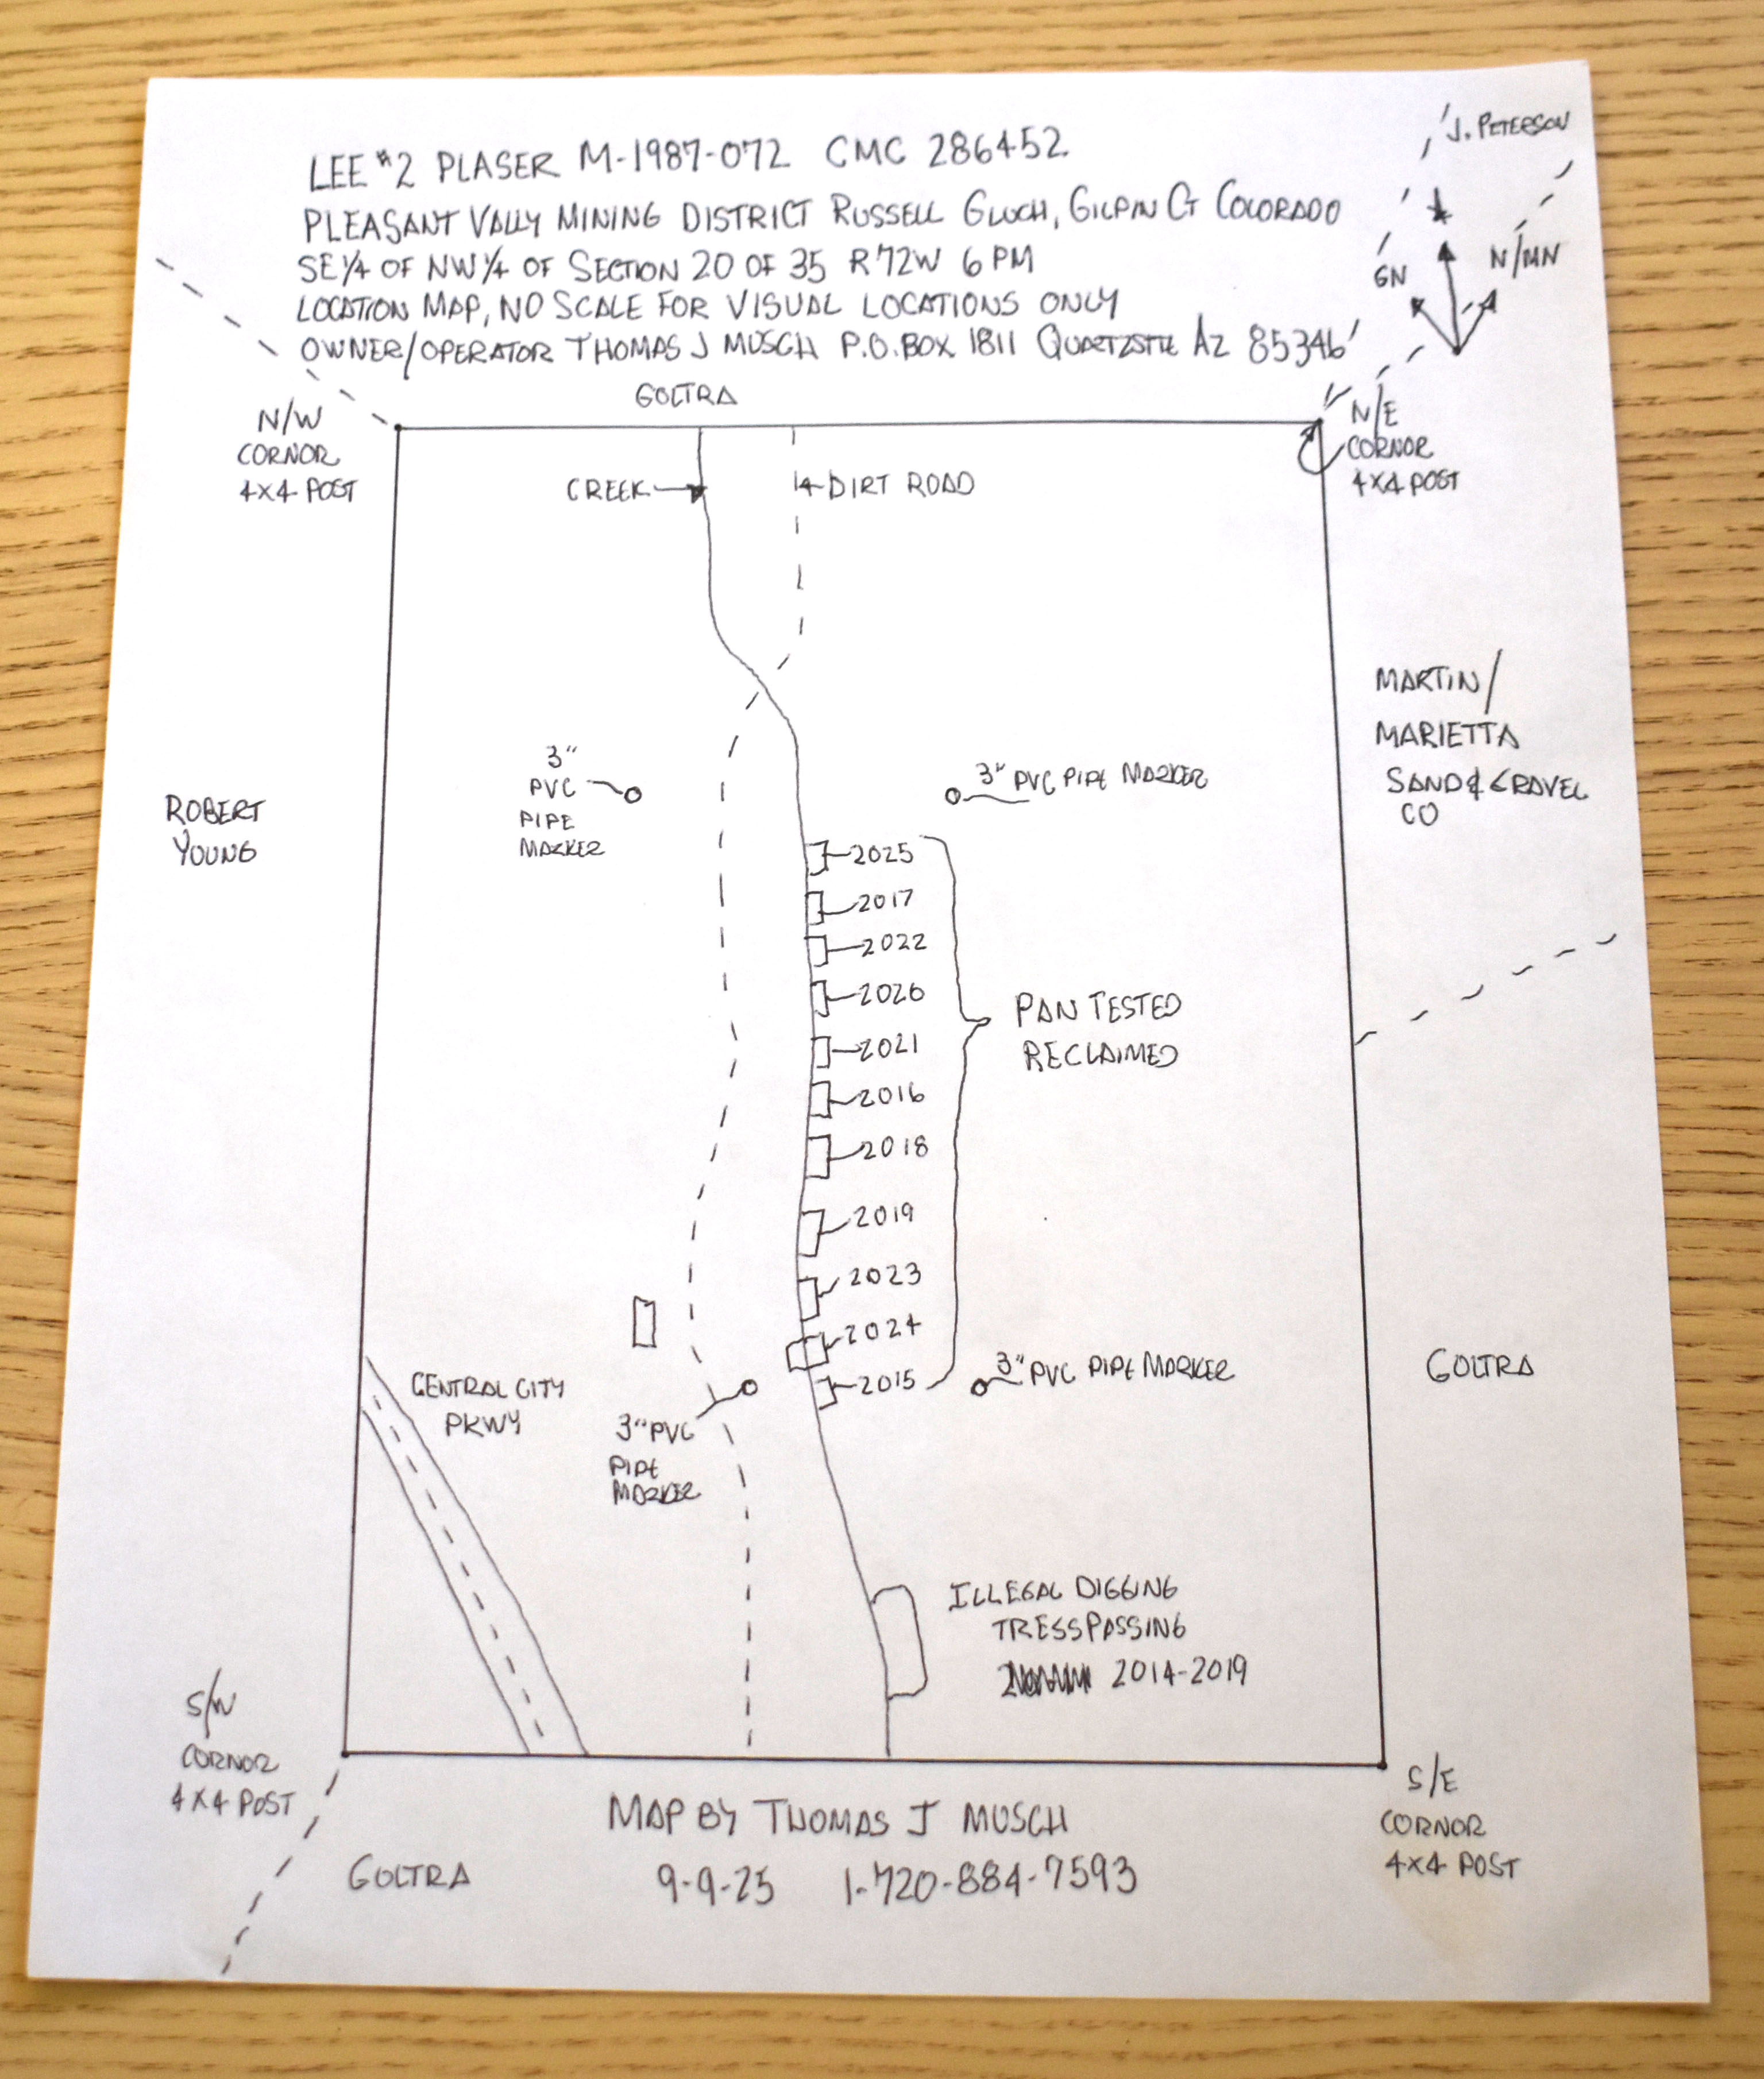 J. PETERSON
LEE #2 PLASER M-1987-072 CMC 286452
PLEASANT VALLY MINING DISTRICT RUSSELL GLUCH, GILPIN CT COLORADO
SE 1/4 OF NW 1/4 OF SECTION 20 OF 35 R72W 6 PM
GN N/MN
LOCATION MAP, NO SCALE FOR VISUAL LOCATIONS ONLY
OWNER/OPERATOR THOMAS J MUSCH P.O. BOX 1811 QUARTZSITE AZ 85346
GOLTRA
N/W
CORNOR
4X4 POST
N/E
CORNOR
4X4 POST
CREEK
DIRT ROAD
MARTIN/
MARIETTA
SAND & GRAVEL
CO
ROBERT
YOUNG
3"
PVC
PIPE
MARKER
3" PVC PIPE MARKER
2025
2017
2022
2026
2021
2016
2018
2019
2023
2024
2015
PAN TESTED
RECLAIMED
3" PVC PIPE MARKER
GOLTRA
CENTRAL CITY
PKWY
3" PVC
PIPE
MARKER
ILLEGAL DIGGING
TRESSPASSING
2014-2019
S/W
CORNOR
4X4 POST
S/E
CORNOR
4X4 POST
MAP BY THOMAS J MUSCH
GOLTRA
9-9-25 1-720-884-7593